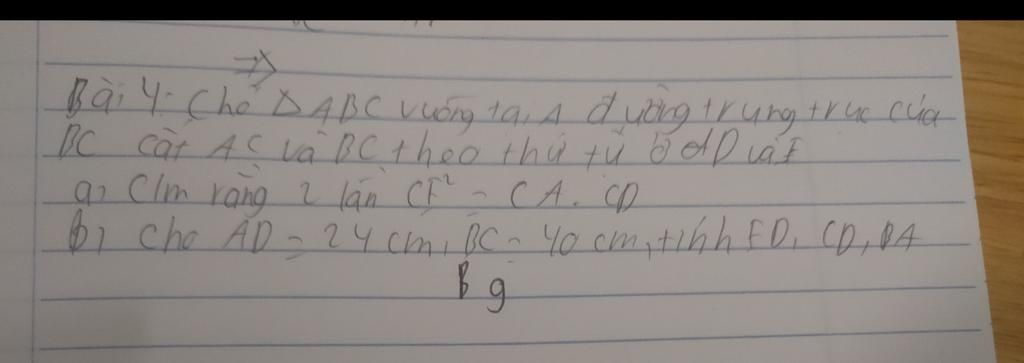 Bài 4: Cho Δ ABC vuông tại A đường trung trực của
BC cắt AC và BC theo thứ tự ở D và F
a, C/m rằng 2 lần CF² = CA. CD
b, Cho AD = 24 cm, BC = 40 cm, tính FD, CD, BA
Bg